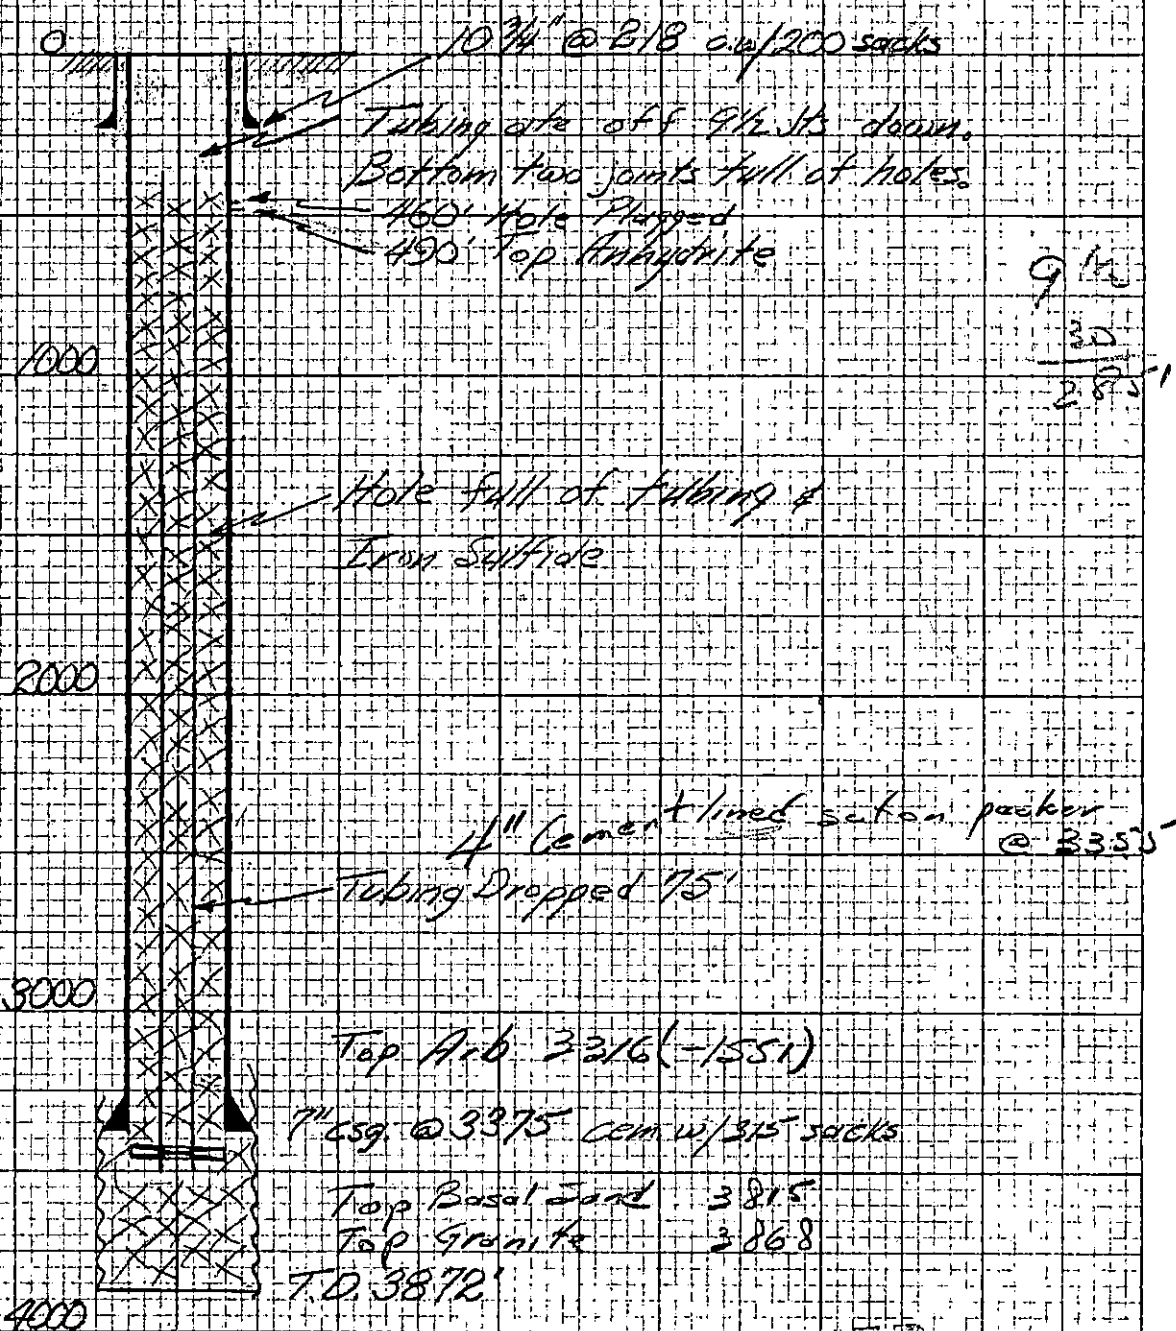 0
10 3/4" @ 218 c.w/200 sacks
Tubing ate off 9 1/2 Jts down.
Bottom two joints full of holes.
460' Hole Plugged
490' Top Anhydrite
9 1/2
30
285'
1000
Hole full of tubing &
Iron Sulfide
2000
4" Cement lined set on packer
@ 3355
Tubing Dropped 75'
3000
Top Arb 3216 (-1551)
7" csg. @ 3375 cem w/315 sacks
Top Basal Sand 3815
Top Granite 3868
T.D. 3872'
4000